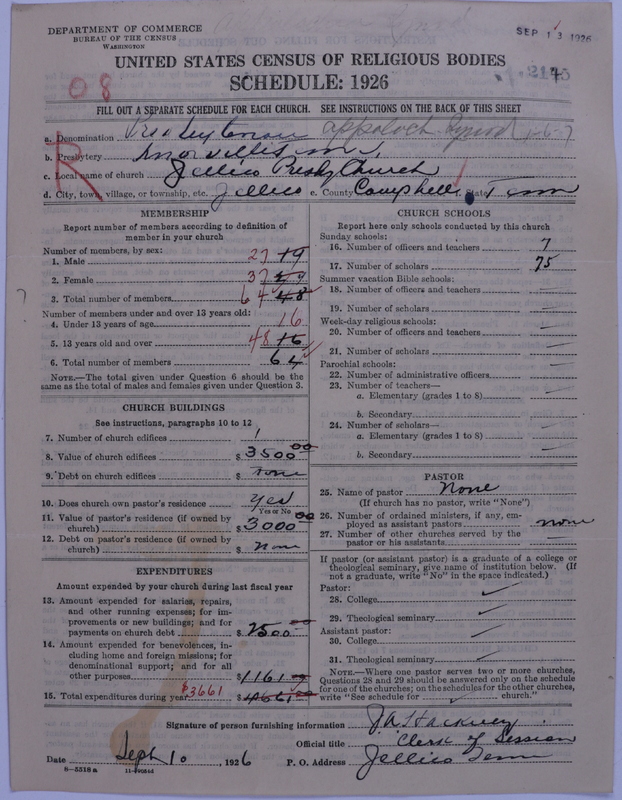 DEPARTMENT OF COMMERCE
BUREAU OF THE CENSUS
WASHINGTON
SEP 13 1926
UNITED STATES CENSUS OF RELIGIOUS BODIES
SCHEDULE: 1926
08
FILL OUT A SEPARATE SCHEDULE FOR EACH CHURCH. SEE INSTRUCTIONS ON THE BACK OF THIS SHEET
R
a. Denomination Presbyterian Appalach Synod 1-6-7
b. Presbytery Knoxville
c. Local name of church Jellico Presby Church
d. City, town, village, or township, etc. Jellico e. County Campbell f. State Tenn
MEMBERSHIP
Report number of members according to definition of member in your church
Number of members, by sex:
1. Male 27 19
2. Female 37
3. Total number of members 64 48
Number of members under and over 13 years old:
4. Under 13 years of age 16
5. 13 years old and over 48 16
6. Total number of members 64
NOTE.—The total given under Question 6 should be the same as the total of males and females given under Question 3.
CHURCH BUILDINGS
See instructions, paragraphs 10 to 12
7. Number of church edifices 1
8. Value of church edifices $3500 00
9. Debt on church edifices $ none
10. Does church own pastor's residence Yes
Yes or No
11. Value of pastor's residence (if owned by church) $3000 00
12. Debt on pastor's residence (if owned by church) $ none
EXPENDITURES
Amount expended by your church during last fiscal year
13. Amount expended for salaries, repairs, and other running expenses; for improvements or new buildings; and for payments on church debt $2500
14. Amount expended for benevolences, including home and foreign missions; for denominational support; and for all other purposes $1161
15. Total expenditures during year $3661 $4661
CHURCH SCHOOLS
Report here only schools conducted by this church
Sunday schools:
16. Number of officers and teachers 7
17. Number of scholars 75
Summer vacation Bible schools:
18. Number of officers and teachers
19. Number of scholars
Week-day religious schools:
20. Number of officers and teachers
21. Number of scholars
Parochial schools:
22. Number of administrative officers
23. Number of teachers—
a. Elementary (grades 1 to 8)
b. Secondary
24. Number of scholars—
a. Elementary (grades 1 to 8)
b. Secondary
PASTOR
25. Name of pastor None
(If church has no pastor, write "None")
26. Number of ordained ministers, if any, employed as assistant pastors none
27. Number of other churches served by the pastor or his assistants
If pastor (or assistant pastor) is a graduate of a college or theological seminary, give name of institution below. (If not a graduate, write "No" in the space indicated.)
Pastor:
28. College
29. Theological seminary
Assistant pastor:
30. College
31. Theological seminary
NOTE.—Where one pastor serves two or more churches, Questions 28 and 29 should be answered only on the schedule for one of the churches; on the schedules for the other churches, write "See schedule for church."
Signature of person furnishing information J A Hackney
Official title Clerk of Session
Date Sept 10, 1926 P. O. Address Jellico Tenn
8—5518 a